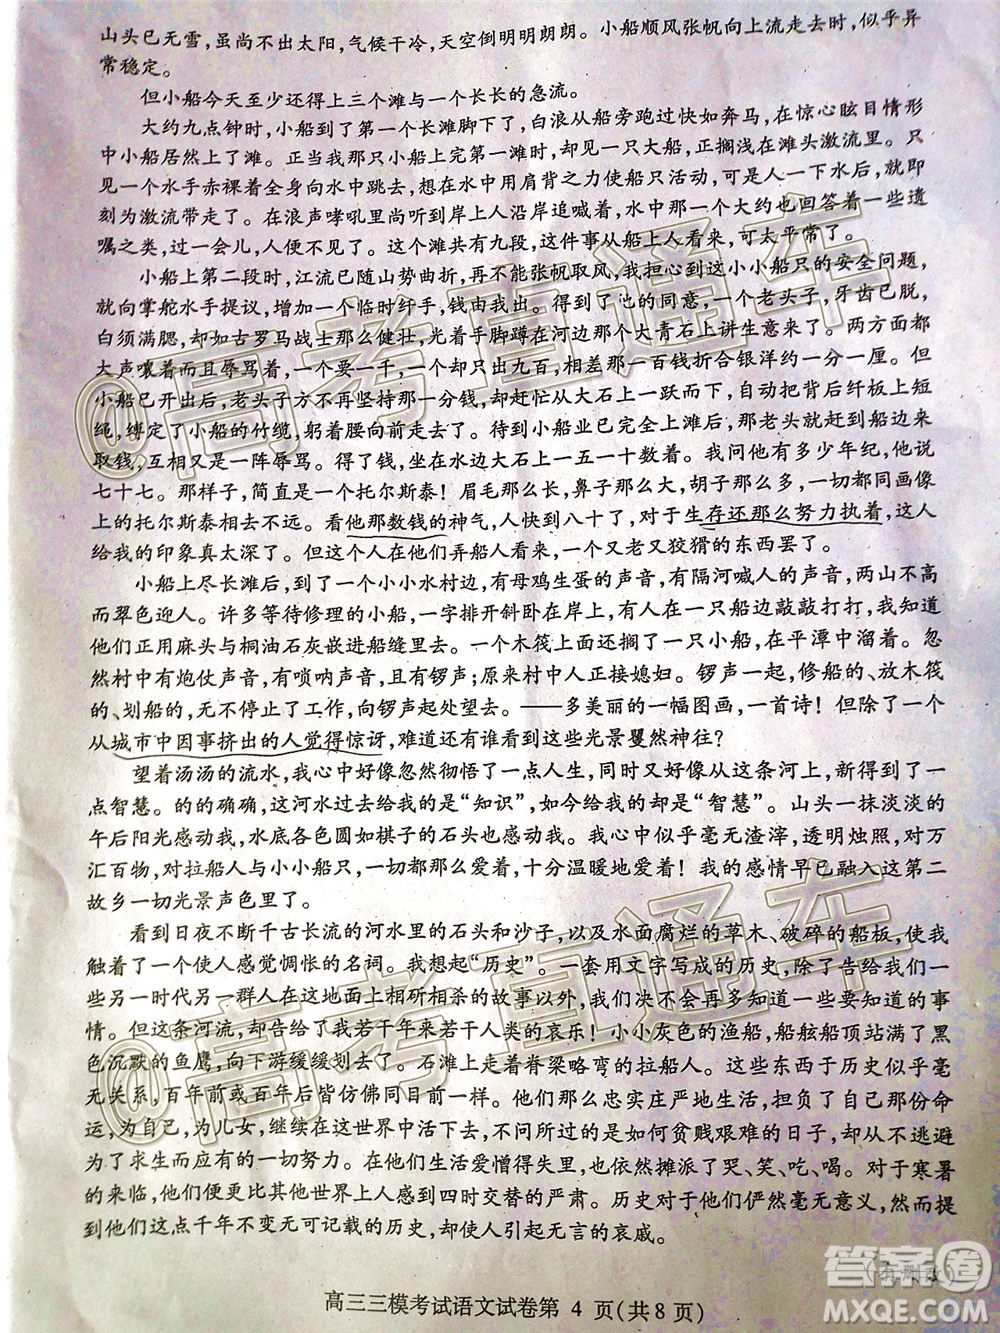 山头已无雪，虽尚不出太阳，气候干冷，天空倒明明朗朗。小船顺风张帆向上流走去时，似乎异
常稳定。
但小船今天至少还得上三个滩与一个长长的急流。
大约九点钟时，小船到了第一个长滩脚下了，白浪从船旁跑过快如奔马，在惊心眩目情形
中小船居然上了滩。正当我那只小船上完第一滩时，却见一只大船，正搁浅在滩头激流里。只见
一个水手赤裸着全身向水中跳去，想在水中用肩背之力使船只活动，可是人一下水后，就即
刻为激流带走了。在浪声哮吼里尚听到岸上人沿岸追喊着，水中那一个大约也回答着一些遗
嘱之类，过一会儿，人便不见了。这个滩共有九段，这件事从船上人看来，可太平常了。
小船上第二段时，江流已随山势曲折，再不能张帆取风，我担心到这小小船只的安全问题，
就向掌舵水手提议，增加一个临时纤手，钱由我出。得到了他的同意，一个老头子，牙齿已脱，
白须满腮，却如古罗马战士那么健壮，光着手脚蹲在河边那个大青石上讲生意来了。两方面都
大声嚷着而且辱骂着，一个要一千，一个却只出九百，相差那一百钱折合银洋约一分一厘。但
小船已开出后，老头子方不再坚持那一分钱，却赶忙从大石上一跃而下，自动把背后纤板上短
绳，缚定了小船的竹缆，躬着腰向前走去了。待到小船业已完全上滩后，那老头就赶到船边来
取钱，互相又是一阵辱骂。得了钱，坐在水边大石上一五一十数着。我问他有多少年纪，他说
七十七。那样子，简直是一个托尔斯泰！眉毛那么长，鼻子那么大，胡子那么多，一切都同画像
上的托尔斯泰相去不远。看他那数钱的神气，人快到八十了，对于生存还那么努力执着，这人
给我的印象真太深了。但这个人在他们弄船人看来，一个又老又狡猾的东西罢了。
小船上尽长滩后，到了一个小小水村边，有母鸡生蛋的声音，有隔河喊人的声音，两山不高
而翠色迎人。许多等待修理的小船，一字排开斜卧在岸上，有人在一只船边敲敲打打，我知道
他们正用麻头与桐油石灰嵌进船缝里去。一个木筏上面还搁了一只小船，在平潭中溜着。忽
然村中有炮仗声音，有唢呐声音，且有锣声；原来村中人正接媳妇。锣声一起，修船的、放木筏
的、划船的，无不停止了工作，向锣声起处望去。——多美丽的一幅图画，一首诗！但除了一个
从城市中因事挤出的人觉得惊讶，难道还有谁看到这些光景矍然神往？
望着汤汤的流水，我心中好像忽然彻悟了一点人生，同时又好像从这条河上，新得到了一
点智慧。的的确确，这河水过去给我的是“知识”，如今给我的却是“智慧”。山头一抹淡淡的
午后阳光感动我，水底各色圆如棋子的石头也感动我。我心中似乎毫无渣滓，透明烛照，对万
汇百物，对拉船人与小小船只，一切都那么爱着，十分温暖地爱着！我的感情早已融入这第二
故乡一切光景声色里了。
看到日夜不断千古长流的河水里的石头和沙子，以及水面腐烂的草木、破碎的船板，使我
触着了一个使人感觉惆怅的名词。我想起“历史”。一套用文字写成的历史，除了告给我们一
些另一时代另一群人在这地面上相斫相杀的故事以外，我们决不会再多知道一些要知道的事
情。但这条河流，却告给了我若干年来若干人类的哀乐！小小灰色的渔船，船舷船顶站满了黑
色沉默的鱼鹰，向下游缓缓划去了。石滩上走着脊梁略弯的拉船人。这些东西于历史似乎毫
无关系，百年前或百年后皆仿佛同目前一样。他们那么忠实庄严地生活，担负了自己那份命
运，为自己，为儿女，继续在这世界中活下去，不问所过的是如何贫贱艰难的日子，却从不逃避
为了求生而应有的一切努力。在他们生活爱憎得失里，也依然摊派了哭、笑、吃、喝。对于寒暑
的来临，他们便更比其他世界上人感到四时交替的严肃。历史对于他们俨然毫无意义，然而提
到他们这点千年不变无可记载的历史，却使人引起无言的哀戚。
高三三模考试语文试卷第 4 页（共8页）
@高考直通车
@高考直通车
答案圈
MXQE.COM